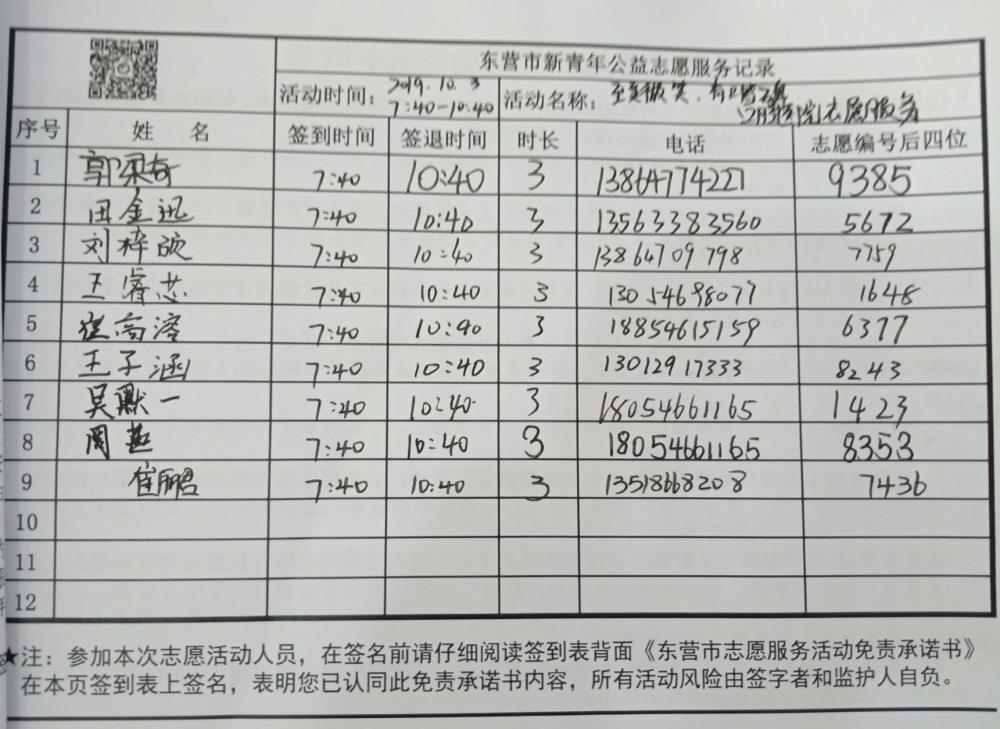 东营市新青年公益志愿服务记录
活动时间： 2019.10.3 7:40-10:40 活动名称： 至真微笑. 志愿服务
序号 姓 名 签到时间 签退时间 时长 电话 志愿编号后四位
1 郭奇 7:40 10:40 3 13864774227 9385
2 田金迅 7:40 10:40 3 13563383560 5672
3 刘梓 7:40 10:40 3 13864709798 7759
4 王睿芯 7:40 10:40 3 13054698077 1648
5 崔高溶 7:40 10:40 3 18854615159 6377
6 王子涵 7:40 10:40 3 13012917333 8243
7 吴默一 7:40 10:40 3 18054661165 1423
8 周燕 7:40 10:40 3 18054661165 8353
9 崔鹏 7:40 10:40 3 13518668208 7436
10
11
12
★注：参加本次志愿活动人员，在签名前请仔细阅读签到表背面《东营市志愿服务活动免责承诺书》
在本页签到表上签名，表明您已认同此免责承诺书内容，所有活动风险由签字者和监护人自负。